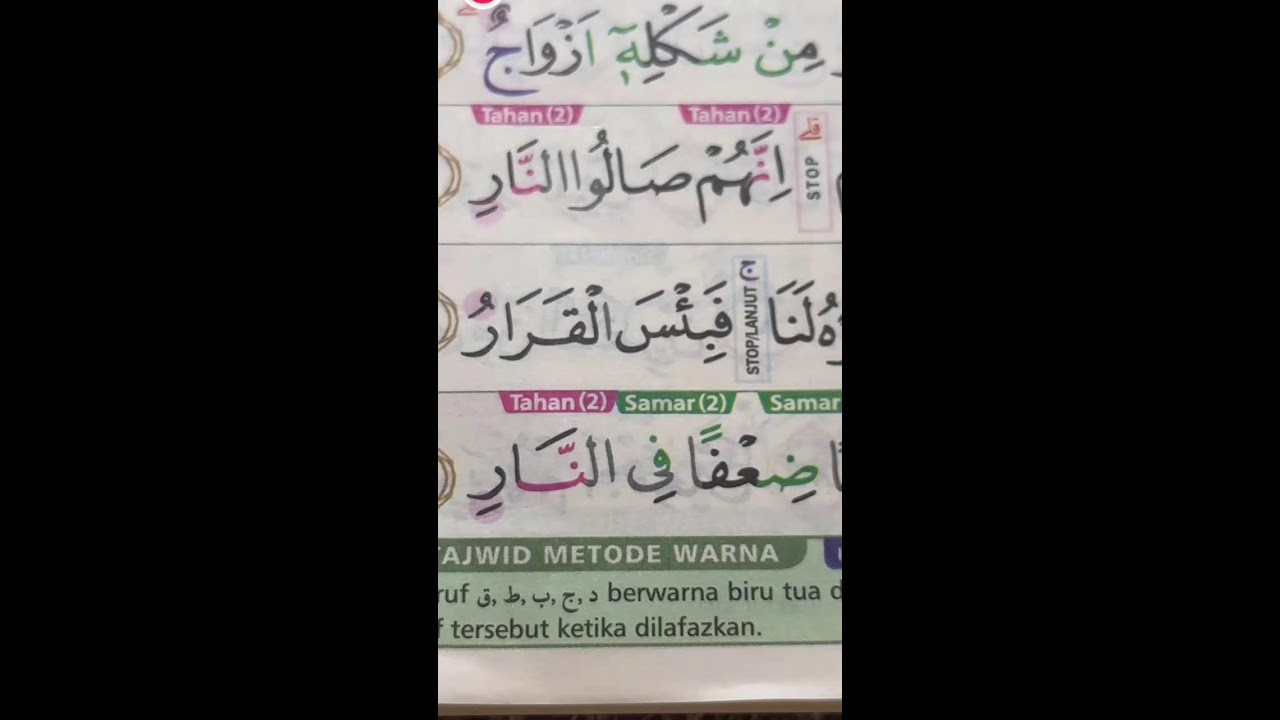 مِنْ شَكْلِهٖٓ اَزْوَاجٌ
Tahan (2) Tahan (2)
قلى STOP اِنَّهُمْ صَالُوا النَّارِ
لَنَا ج STOP/LANJUT فَبِئْسَ الْقَرَارُ
Tahan (2) Samar (2) Samar
ضِعْفًا فِى النَّارِ
AJWID METODE WARNA
ruf د, ج, ب, ط, ق berwarna biru tua d
f tersebut ketika dilafazkan.